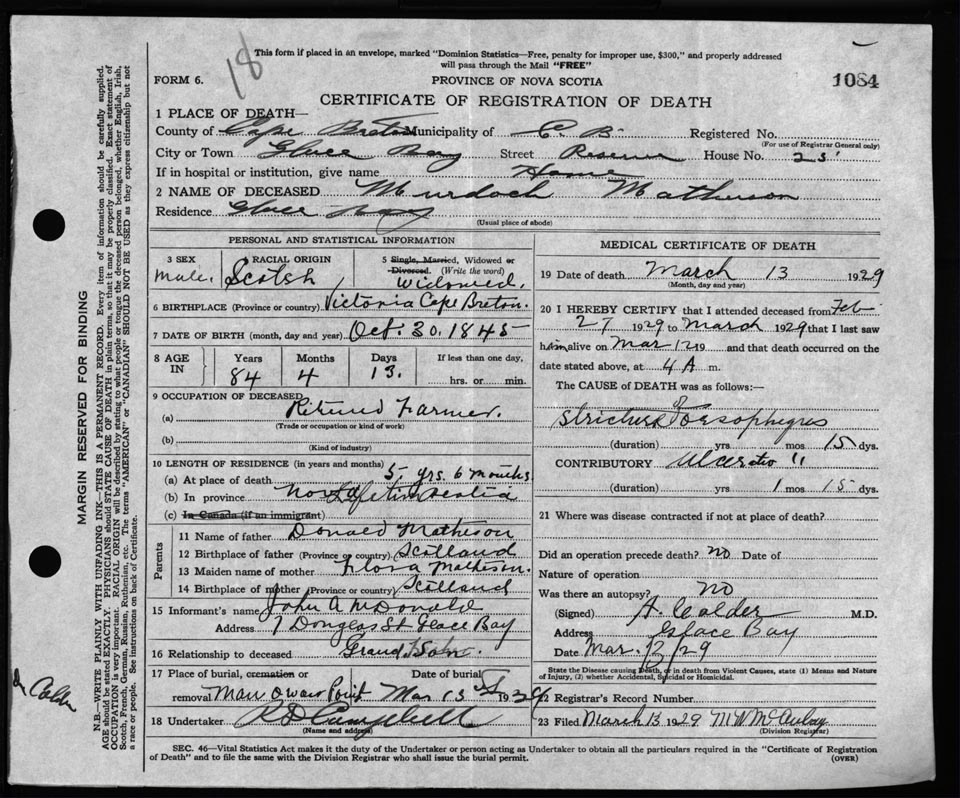 This form if placed in an envelope, marked "Dominion Statistics—Free, penalty for improper use, $300," and properly addressed
will pass through the Mail "FREE"
18
FORM 6.
PROVINCE OF NOVA SCOTIA
1084
CERTIFICATE OF REGISTRATION OF DEATH
1 PLACE OF DEATH—
County of Cape Breton Municipality of C. B. Registered No.
(For use of Registrar General only)
City or Town Glace Bay Street Reserve House No. 25
If in hospital or institution, give name Home
2 NAME OF DECEASED Murdoch Matheson
Residence Glace Bay
(Usual place of abode)
PERSONAL AND STATISTICAL INFORMATION
3 SEX Male.
4 RACIAL ORIGIN Scotch
5 Single, Married, Widowed or Divorced. (Write the word) Widowed.
6 BIRTHPLACE (Province or country) Victoria Cape Breton.
7 DATE OF BIRTH (month, day and year) Oct. 30. 1845
8 AGE IN Years 84 Months 4 Days 13. If less than one day, hrs. or min.
9 OCCUPATION OF DECEASED
(a) Retired Farmer.
(Trade or occupation or kind of work)
(b)
(Kind of industry)
10 LENGTH OF RESIDENCE (in years and months)
(a) At place of death 5 yrs. 6 months
(b) In province Nova Lifetime Scotia
(c) In Canada (if an immigrant)
Parents
11 Name of father Donald Matheson
12 Birthplace of father (Province or country) Scotland
13 Maiden name of mother Flora Matheson.
14 Birthplace of mother (Province or country) Scotland
15 Informant's name John A McDonald
Address 7 Douglas St Glace Bay
16 Relationship to deceased Grand Son.
17 Place of burial, cremation or Date of burial
removal Man O War Point Mar 15 1929
18 Undertaker R D Campbell
(Name and address)
MEDICAL CERTIFICATE OF DEATH
19 Date of death March 13 1929
(Month, day and year)
20 I HEREBY CERTIFY that I attended deceased from Feb
27 1929 to March 1929 that I last saw
him alive on Mar 12 19 and that death occurred on the
date stated above, at 4 A m.
The CAUSE of DEATH was as follows:—
Stricture of Oesophegus
(duration) yrs mos 15 dys.
CONTRIBUTORY Ulceration "
(duration) yrs 1 mos 15 dys.
21 Where was disease contracted if not at place of death?
Did an operation precede death? no Date of
Nature of operation
Was there an autopsy? no
(Signed) A. Calder M.D.
Address Glace Bay
Date Mar. 13/29
State the Disease causing Death, or in death from Violent Causes, state (1) Means and Nature
of Injury, (2) whether Accidental, Suicidal or Homicidal.
22 Registrar's Record Number
23 Filed March 13 1929 M W McAulay
(Division Registrar)
SEC. 46—Vital Statistics Act makes it the duty of the Undertaker or person acting as Undertaker to obtain all the particulars required in the "Certificate of Registration
of Death" and to file the same with the Division Registrar who shall issue the burial permit.
(OVER)
MARGIN RESERVED FOR BINDING
N.B.—WRITE PLAINLY WITH UNFADING INK—THIS IS A PERMANENT RECORD. Every item of information should be carefully supplied.
AGE should be stated EXACTLY. PHYSICIANS should STATE CAUSE OF DEATH in plain terms, so that it may be properly classified. Exact statement of
OCCUPATION is very important. RACIAL ORIGIN will be described by stating to what people or tongue the deceased person belonged, whether English, Irish,
Scotch, French, German, Russian, Ruthenian, etc. The terms "AMERICAN" or "CANADIAN" SHOULD NOT BE USED as they express citizenship but not
a race or people. See instructions on back of Certificate.